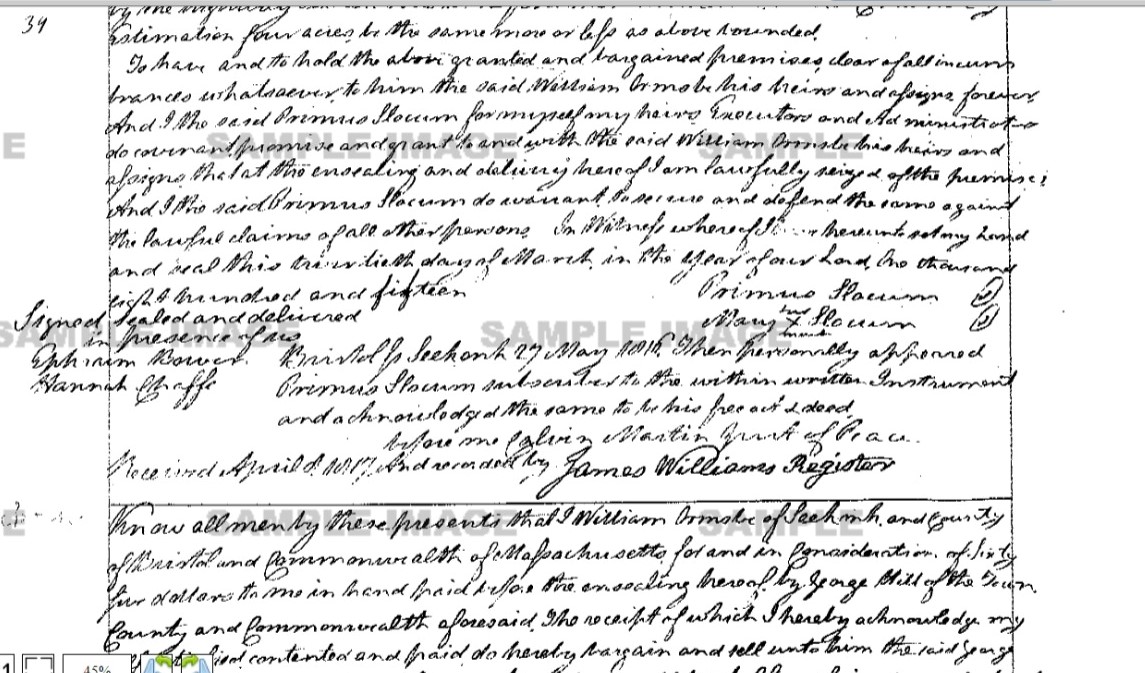 39
by the highway
Estimation four acres be the same more or less as above bounded.
To have and to hold the above granted and bargained premises, clear of all incum
brances whatsoever, to him the said William Ormsbe his heirs and assigns forever
And I the said Primus Slocum for myself my heirs Executors and Administrators
do covenant promise and grant to and with the said William Ormsbe his heirs and
assigns that at the ensealing and delivery hereof I am lawfully seized of the premises
And I the said Primus Slocum do warrant to secure and defend the same against
the lawful claims of all other persons In Witness whereof I hereunto set my hand
and seal this day of March in the year of our Lord One thousand
eight hundred and Primus Slocum
Signed, sealed and delivered Mary X Slocum
in presence of us
Ephraim Bower Bristol Ss Seekonk 27 May 1816 Then personally appeared
Hannah Chaffe Primus Slocum subscriber to the within written Instrument
and acknowledged the same to be his free act & deed
before me Calvin Martin Just of Peace.
Received April 8 1817 And recorded by James Williams Register
Know all men by these presents that I William Ormsbe of Seekonk and County
of Bristol and Commonwealth of Massachusetts for and in Consideration of Sixty
four dollars to me in hand paid before the ensealing hereof by George Hill of the Town
County and Commonwealth aforesaid, The receipt of which I hereby acknowledge my
contented and paid do hereby bargain and sell unto him the said George
SAMPLE IMAGE SAMPLE IMAGE SAMPLE
SAMPLE IMAGE SAMPLE IMAGE
SAMPLE IMAGE SAMPLE
1 45%